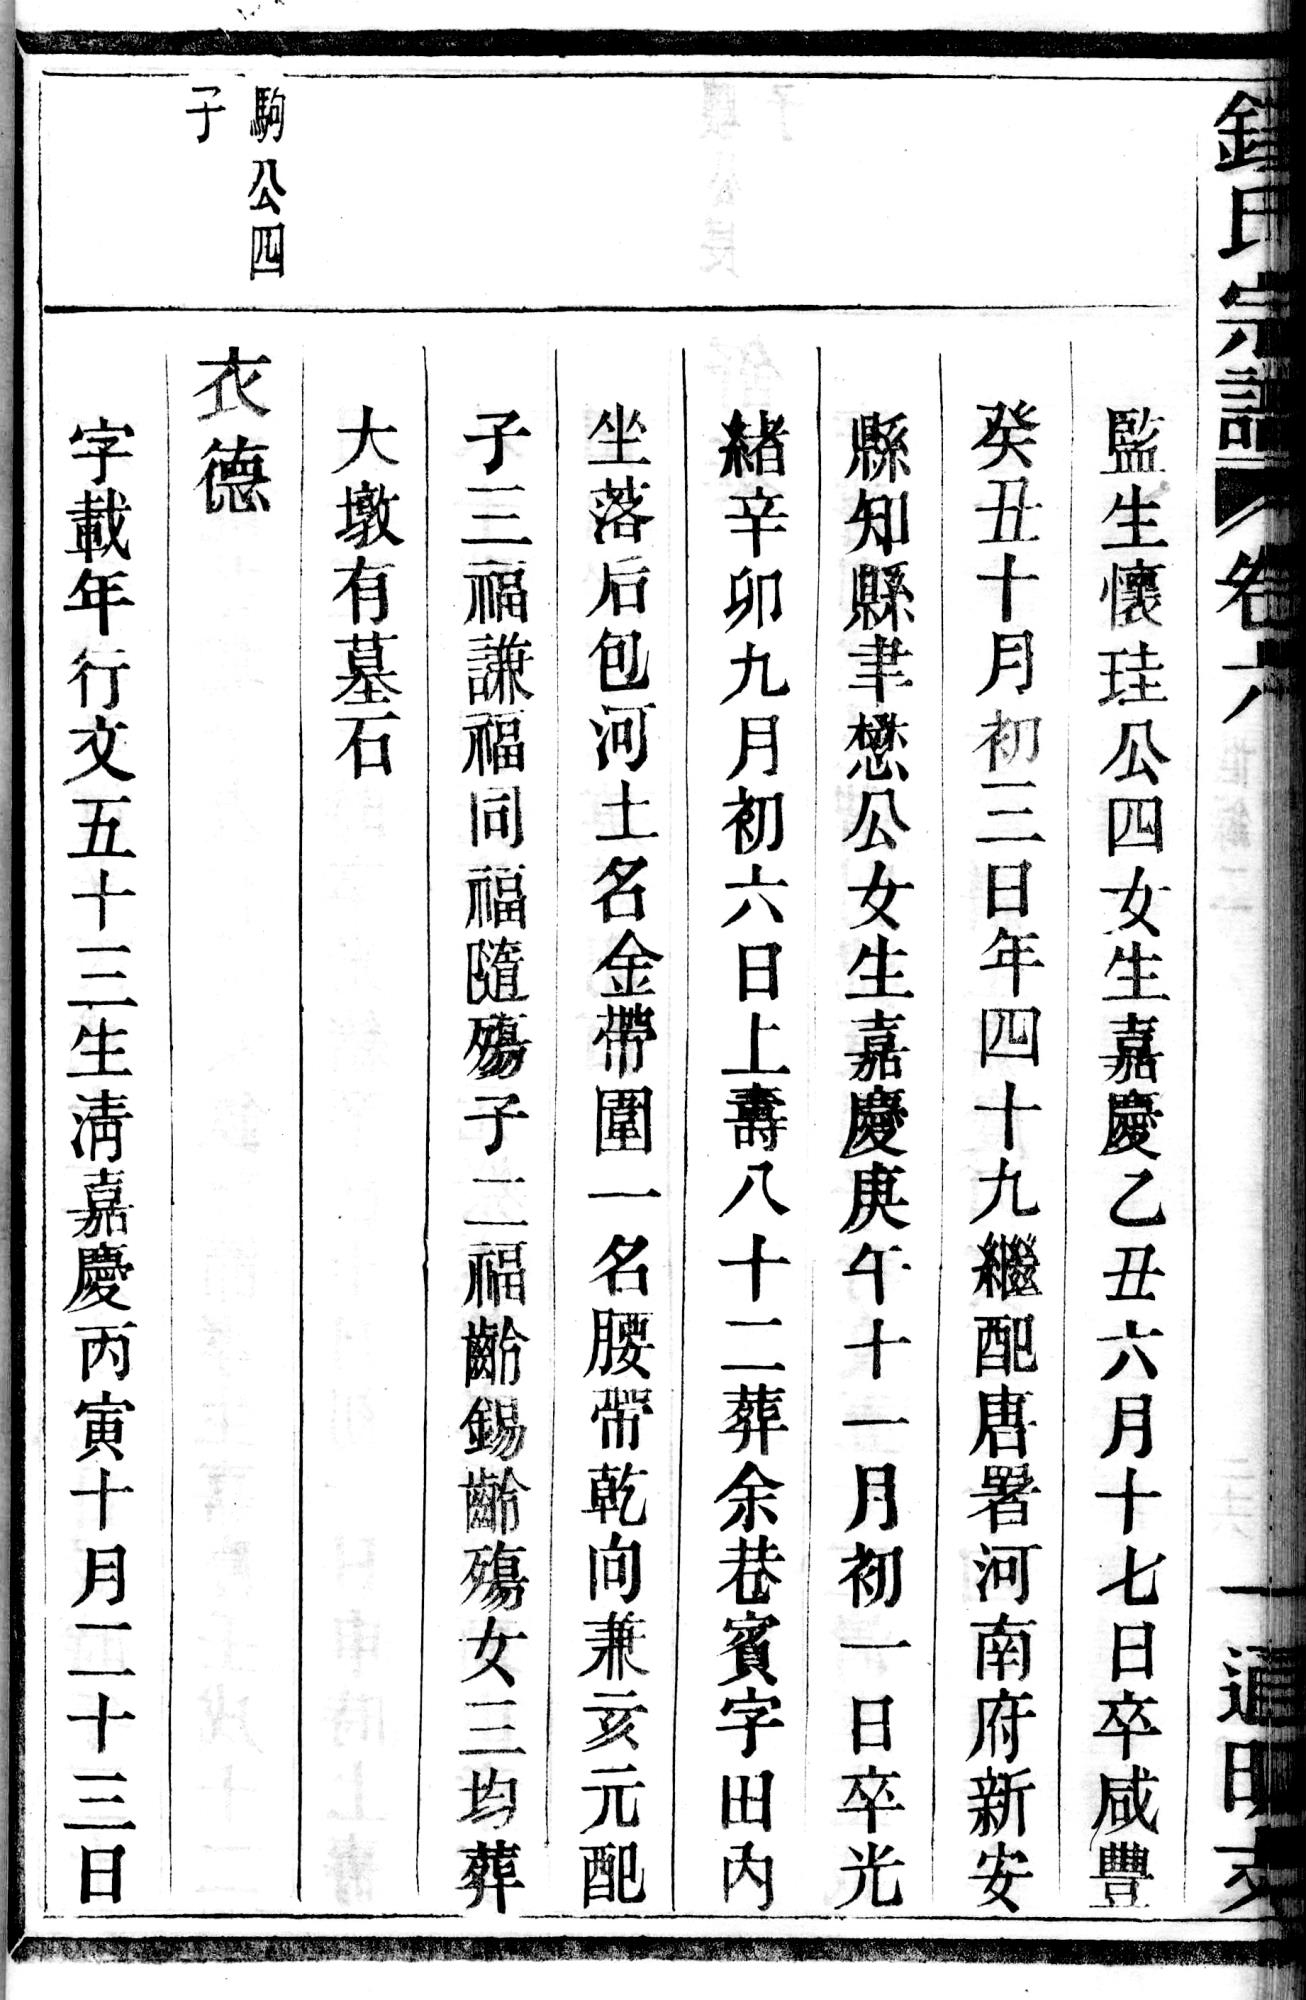 鍾氏宗譜
卷六
一
道明支
監生懷珪公四女生嘉慶乙丑六月十七日卒咸豐
癸丑十月初三日年四十九繼配唐署河南府新安
縣知縣聿懋公女生嘉慶庚午十一月初一日卒光
緒辛卯九月初六日上壽八十二葬余巷賓字田內
坐落后包河土名金帶圍一名腰帶乾向兼亥元配
子三福謙福同福隨殤子二福齡錫齡殤女三均葬
大墩有墓石
駒公四
子
衣德
字載年行文五十三生清嘉慶丙寅十月二十三日